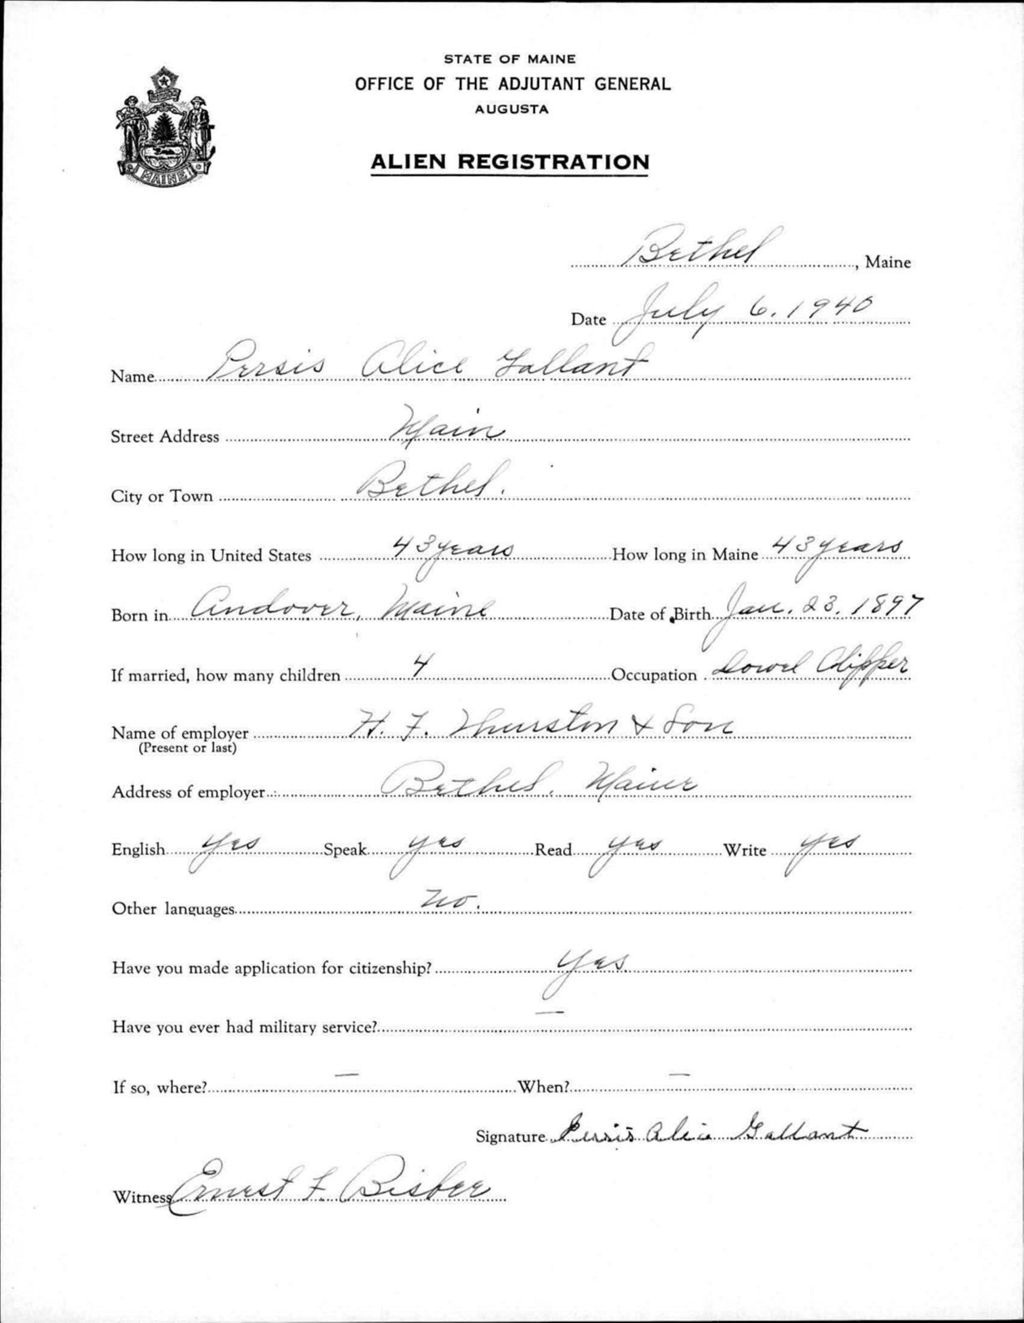 STATE OF MAINE
OFFICE OF THE ADJUTANT GENERAL
AUGUSTA
ALIEN REGISTRATION
MAINE
Bethel, Maine
Date July 6, 1940
Name Persis Alice Gallant
Street Address Main
City or Town Bethel.
How long in United States 43 years How long in Maine 43 years
Born in Andover, Maine Date of Birth Jan. 23, 1897
If married, how many children 4 Occupation Dowel Clipper
Name of employer H. F. Thurston & Son
(Present or last)
Address of employer Bethel, Maine
English yes Speak yes Read yes Write yes
Other languages no.
Have you made application for citizenship? yes
Have you ever had military service? —
If so, where? — When? —
Signature Persis Alice Gallant
Witness Ernest F. Bisbee